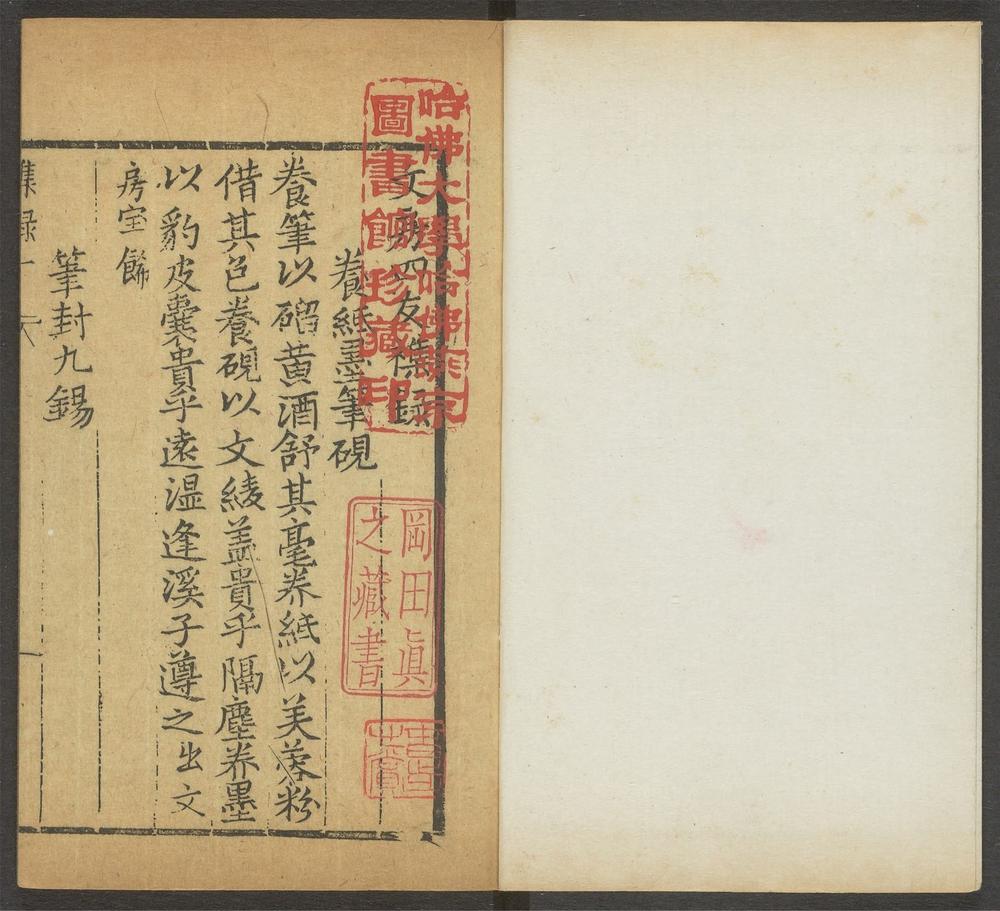 哈佛大學哈佛燕京
圖書館珍藏印
文房四友襍録
養紙墨筆硯
養筆以磂黄酒舒其毫养紙以芙蓉粉
借其色養硯以文綾盖貴乎隔塵养墨
以豹皮囊貴乎遠湿逢溪子遵之出文
房宝飾
筆封九錫
集録一
岡田眞
之藏書